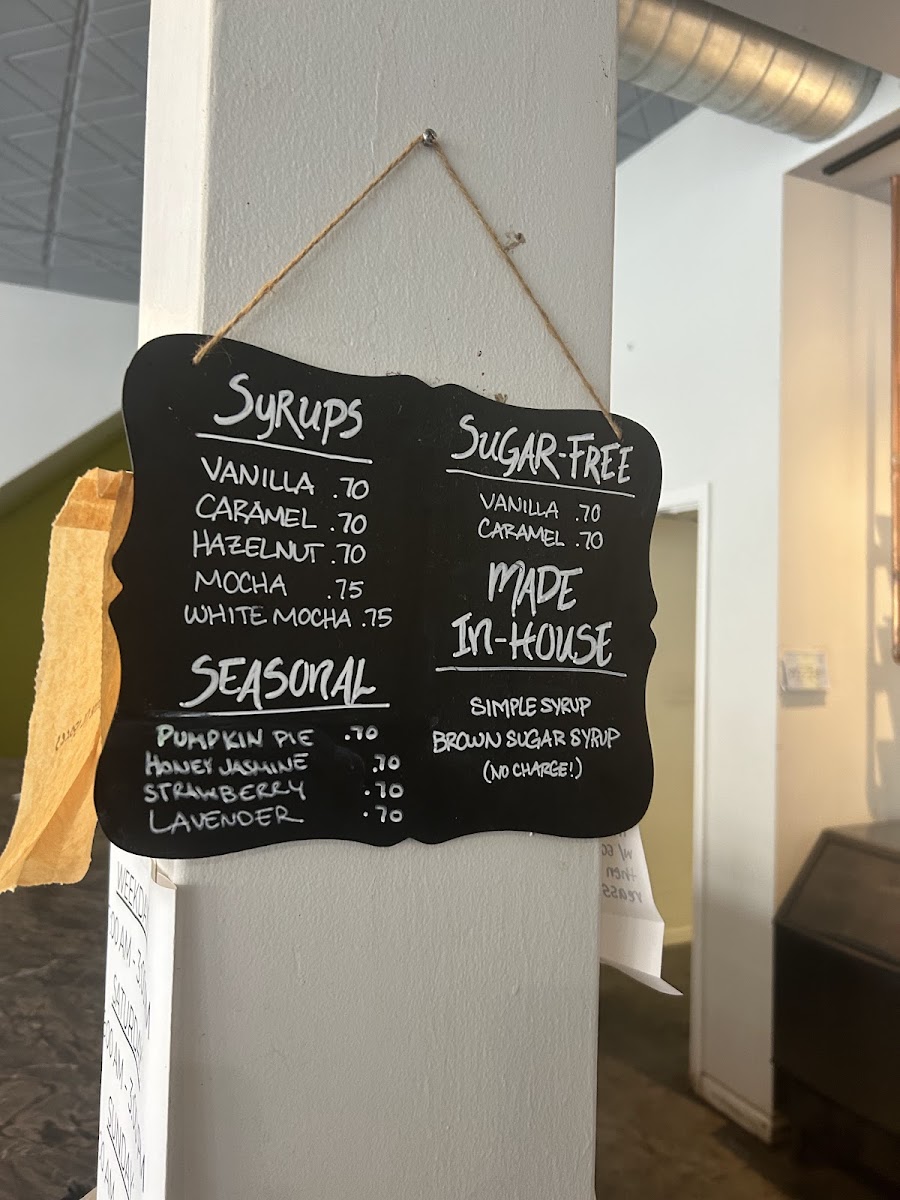 SYRUPS
VANILLA .70
CARAMEL .70
HAZELNUT .70
MOCHA .75
WHITE MOCHA .75
SEASONAL
PUMPKIN PIE .70
HONEY JASMINE .70
STRAWBERRY .70
LAVENDER .70
SUGAR-FREE
VANILLA .70
CARAMEL .70
MADE
IN-HOUSE
SIMPLE SYRUP
BROWN SUGAR SYRUP
(NO CHARGE!)
w/
then